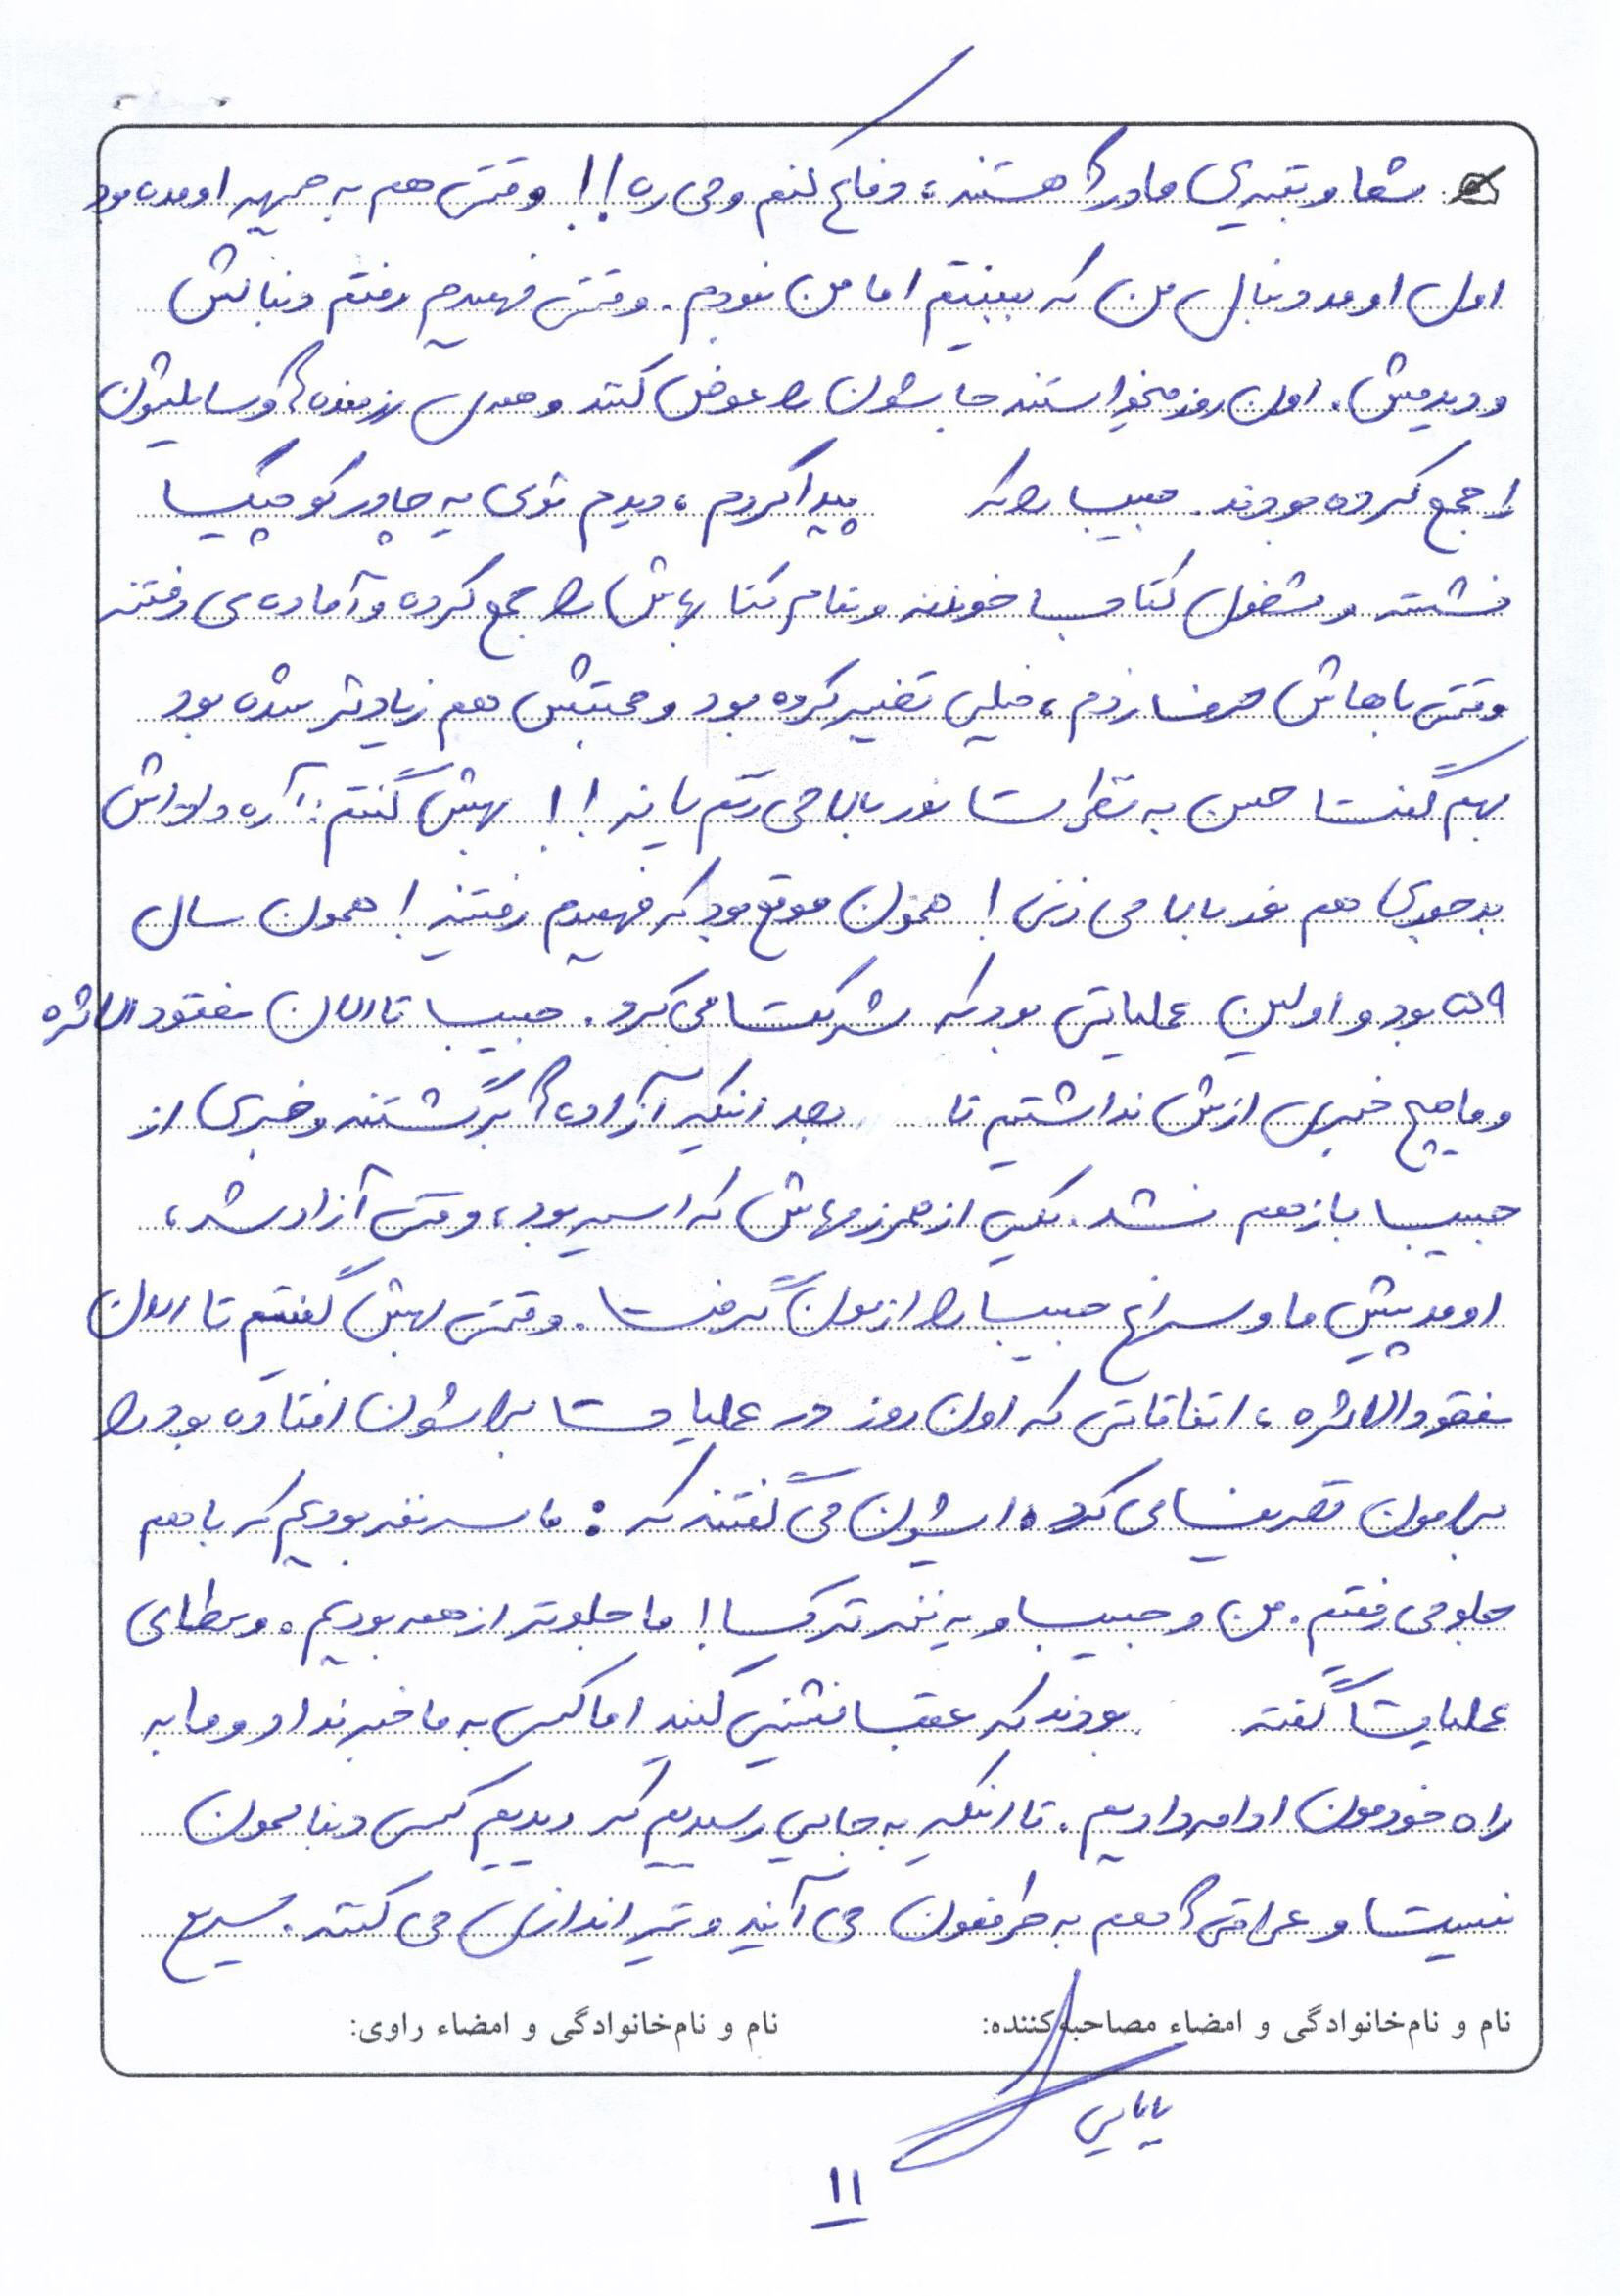 شما و بقیه‌ی مادرا هستند، دفاع کنم و می ره!! وقتی هم به جبهه اومده بود
اول اومد دنبال من که ببینتم اما من نبودم. وقتی فهمیدم رفتم دنبالش
و دیدمش. اون روز میخواستند جاشون را عوض کنند و همه‌ی رزمنده‌ها وسایلشون
را جمع کرده بودند. حبیب را که پیدا کردم، دیدم توی یه چادر کوچیک
نشسته و مشغول کتاب خوندنه و تمام کتابهاش را جمع کرده و آماده‌ی رفتنه
وقتی باهاش حرف زدم، خیلی تغییر کرده بود و محبتش هم زیادتر شده بود
بهم گفت حسن به نظرت نور بالا می زنم یا نه!! بهش گفتم: آره داداش
بدجوری هم نور بالا می زنی! همون موقع بود که فهمیدم رفتنیه! همون سال
۵۹ بود و اولین عملیاتی بود که شرکت می کرد. حبیب تا الان مفقود الاثره
و ما هیچ خبری ازش نداشتیم تا بعد اینکه آزاده‌ها برگشتند و خبری از
حبیب باز هم نشد. یکی از همرزمهاش که اسیر بود، وقتی آزاد شد،
اومد پیش ما و سراغ حبیب را ازمون گرفت. وقتی بهش گفتیم تا الان
مفقود الاثره، اتفاقاتی که اون روز در عملیات براشون افتاده بود را
برامون تعریف می کرد. ایشون می گفتند که: ما سه نفر بودیم که با هم
جلو می رفتیم. من و حبیب و یه نفر ترک! ما جلوتر از همه بودیم. وسطای
عملیات گفته بودند که عقب نشینی کنید اما کسی به ما خبر نداد و ما به
راه خودمون ادامه دادیم. تا اینکه به جایی رسیدیم که دیدیم کسی دنبالمون
نیست و عراقی‌ها هم به طرفمون می آیند و تیراندازی می کنند. سریع
نام و نام‌خانوادگی و امضاء مصاحبه‌کننده: نام و نام‌خانوادگی و امضاء راوی:
بابایی
۱۱